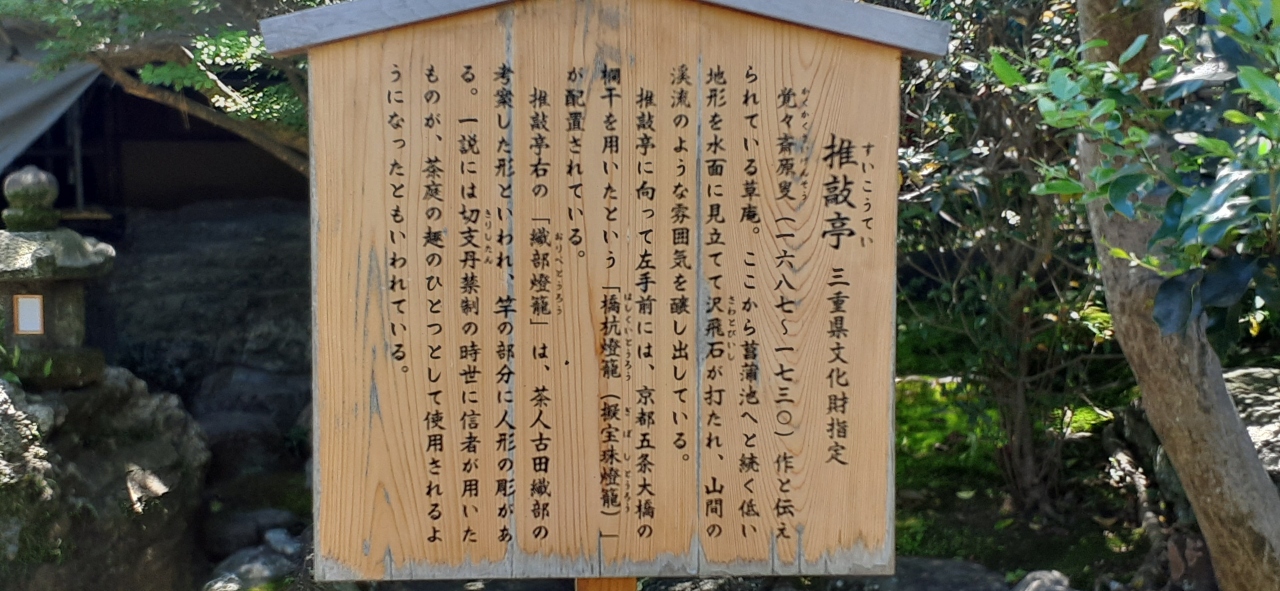 推敲亭 三重県文化財指定
すいこうてい
覚々斎原叟(一六八七〜一七三〇)作と伝え
かくかくさいげんそう
られている草庵。ここから菖蒲池へと続く低い
地形を水面に見立てて沢飛石が打たれ、山間の
さわとびいし
渓流のような雰囲気を醸し出している。
推敲亭に向って左手前には、京都五条大橋の
欄干を用いたという「橋杭燈籠(擬宝珠燈籠)」
はしくいとうろう ぎぼしとうろう
が配置されている。
推敲亭右の「織部燈籠」は、茶人古田織部の
おりべどうろう
考案した形といわれ、竿の部分に人形の彫があ
る。一説には切支丹禁制の時世に信者が用いた
きりしたん
ものが、茶庭の趣のひとつとして使用されるよ
うになったともいわれている。